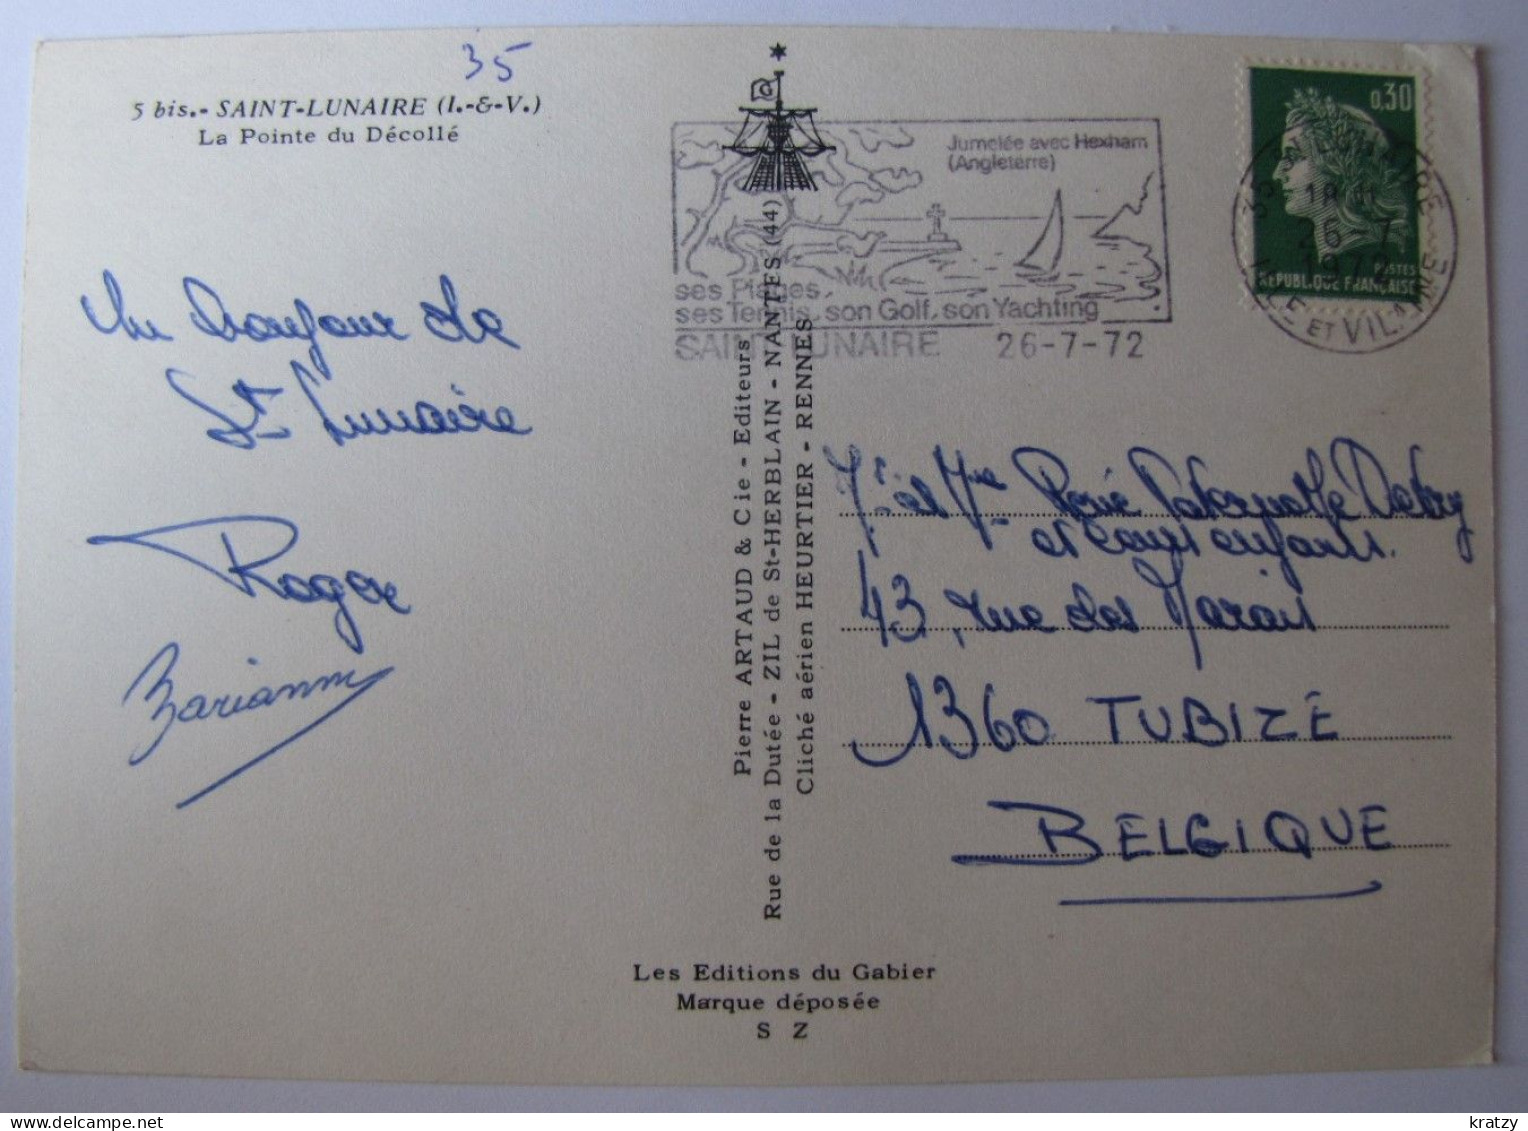 35
5 bis.- SAINT-LUNAIRE (I.-&-V.)
La Pointe du Décollé
Un bonjour de
St Lunaire
Roger
Jumelée avec Hexham
(Angleterre)
ses Plages,
ses Tennis, son Golf, son Yachting
SAINT-LUNAIRE 26-7-72
0,30
POSTES
REPUBLIQUE FRANÇAISE
35 ST LUNAIRE
18 H
26-7
1972
ILLE ET VILAINE
Pierre ARTAUD & Cie - Editeurs
Rue de la Dutée - ZIL de St-HERBLAIN - NANTES (44)
Cliché aérien HEURTIER - RENNES
et Mme René
et leurs enfants.
43, rue des Marais
1360 TUBIZE
BELGIQUE
Les Editions du Gabier
Marque déposée
S Z
kratzy